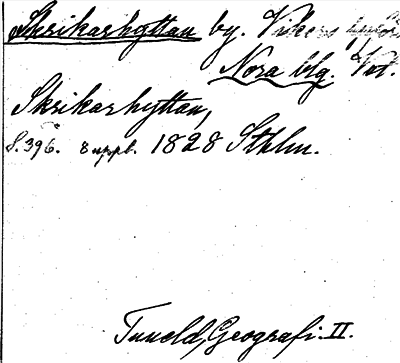 Skrikarhyttan by. Vikers
Nora blg. Vst.
Skrikarhyttan,
S. 396. 8 uppl. 1828 Sthlm.
Tuneld, Geografi. II.